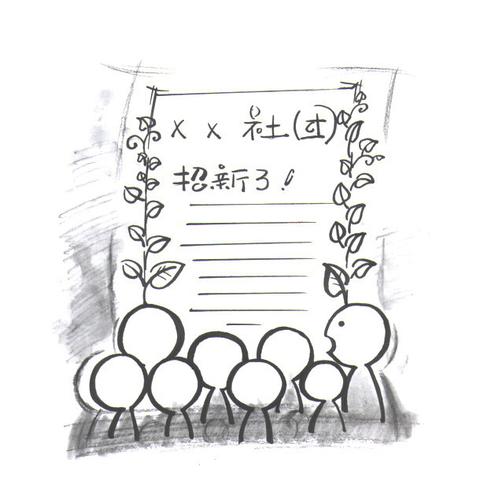 x x 社(团)
招新了!